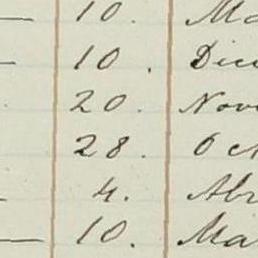 10. Ma
10. Dici
20. Novi
28. Oct
4. Abr
10. Ma